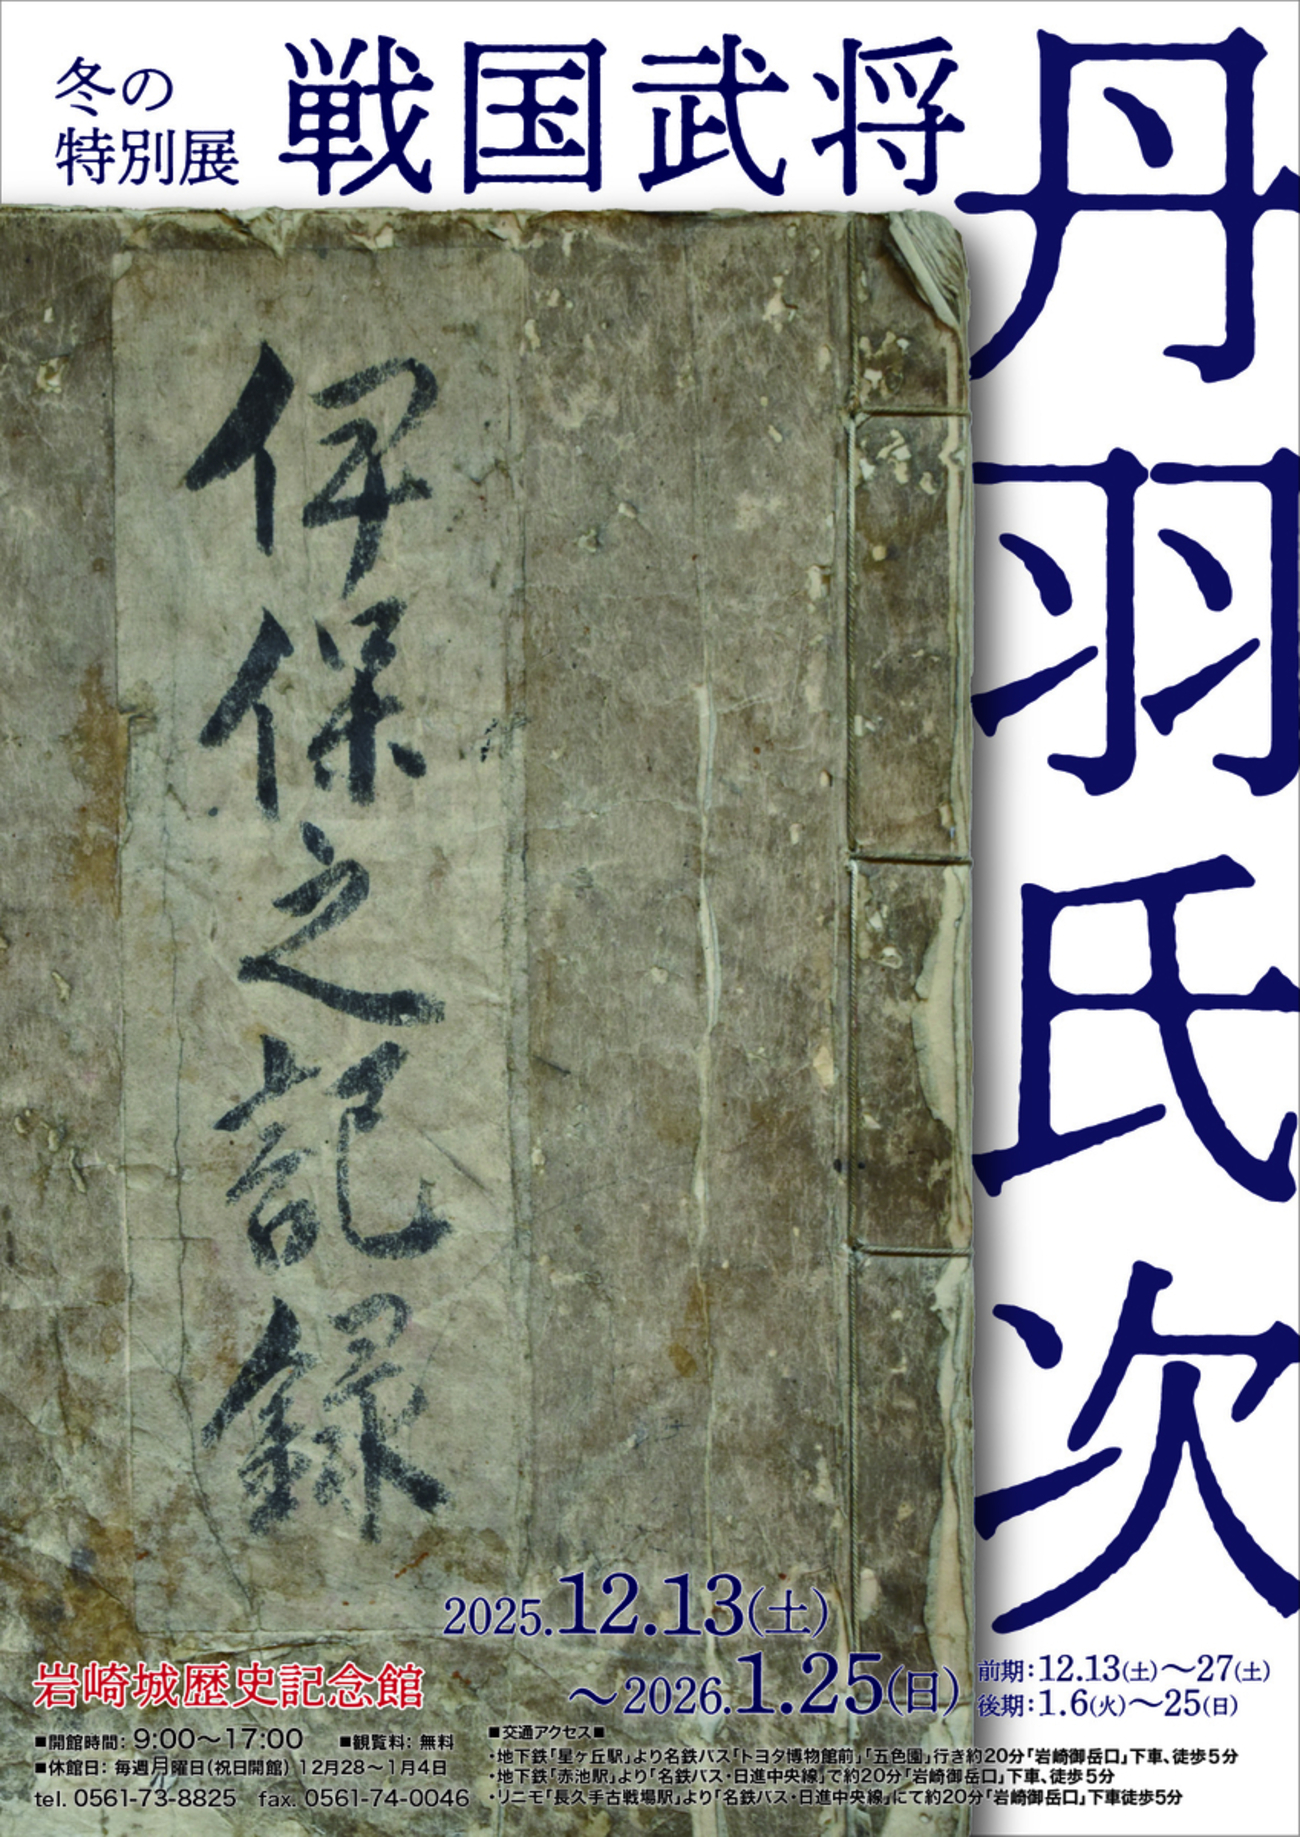 冬の
特別展
戦国武将
丹羽氏次
伊保之記録
2025.12.13(土)
～2026.1.25(日)
前期:12.13(土)～27(土)
後期:1.6(火)～25(日)
岩崎城歴史記念館
■開館時間: 9:00～17:00 ■観覧料: 無料
■休館日: 毎週月曜日(祝日開館) 12月28～1月4日
tel. 0561-73-8825 fax. 0561-74-0046
■交通アクセス■
・地下鉄「星ヶ丘駅」より名鉄バス「トヨタ博物館前」「五色園」行き約20分「岩崎御岳口」下車、徒歩5分
・地下鉄「赤池駅」より「名鉄バス・日進中央線」で約20分「岩崎御岳口」下車、徒歩5分
・リニモ「長久手古戦場駅」より「名鉄バス・日進中央線」にて約20分「岩崎御岳口」下車徒歩5分